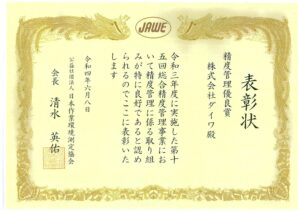 JAWE
表彰状
精度管理優良賞
株式会社ダイワ殿
令和三年度に実施した第十
五回総合精度管理事業にお
いて精度管理に係る取り組
みが特に良好であると認め
られるのでここに表彰いた
します
令和四年六月八日
公益社団法人 日本作業環境測定協会
会長 清水 英佑